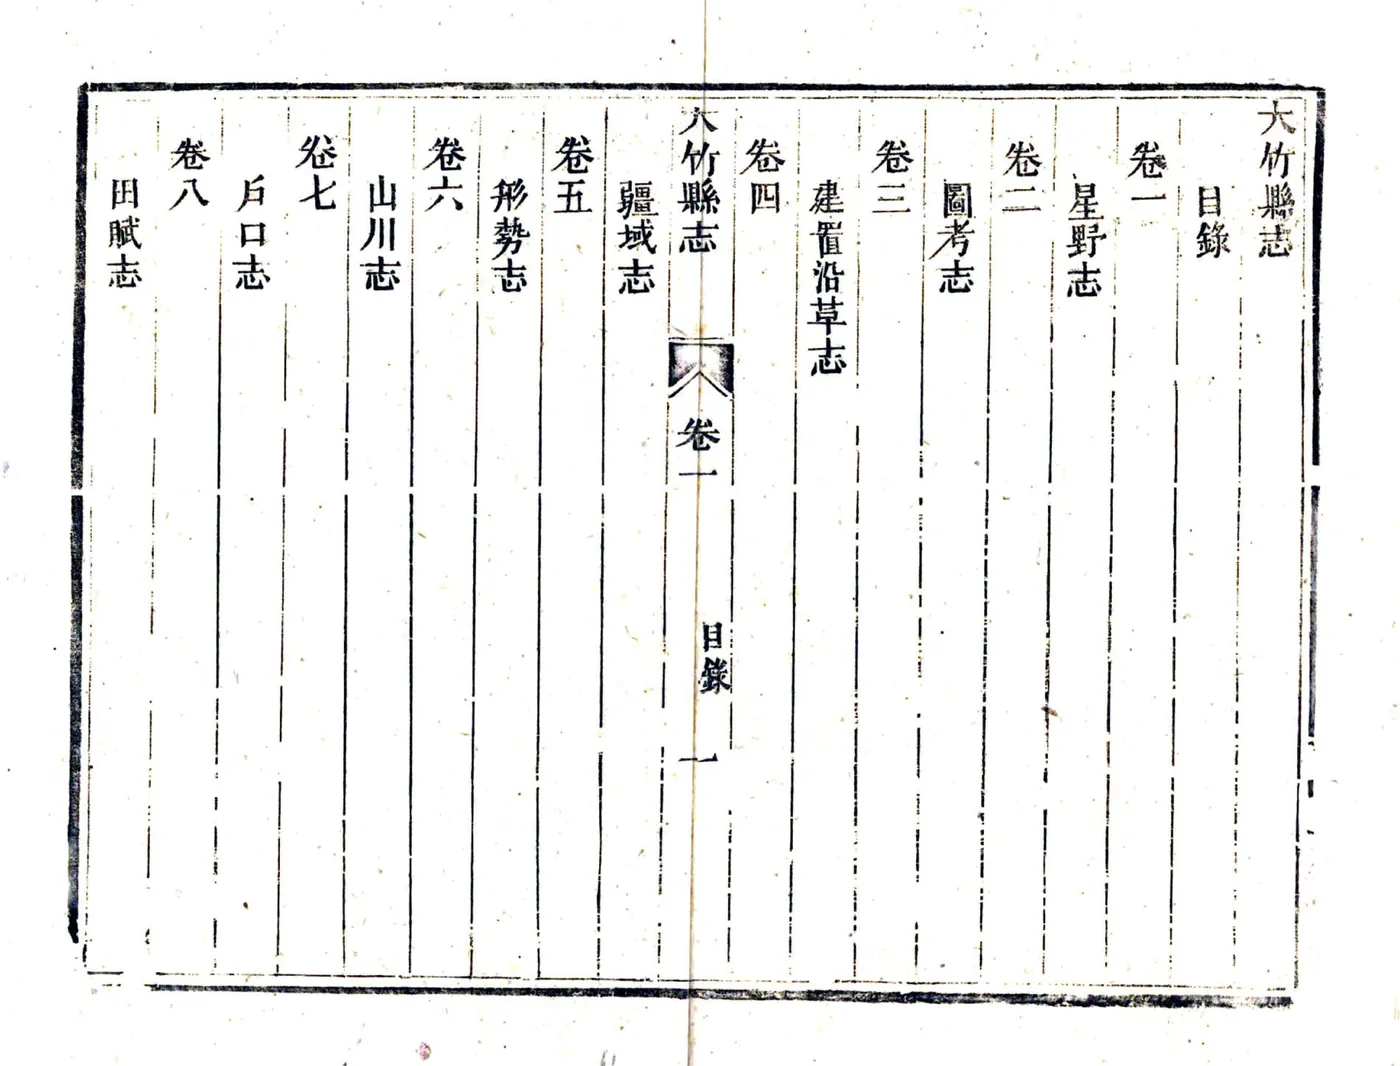 大竹縣志
目錄
卷一
星野志
卷二
圖考志
卷三
建置沿草志
卷四
大竹縣志 卷一 目錄 一
疆域志
卷五
形勢志
卷六
山川志
卷七
戶口志
卷八
田賦志